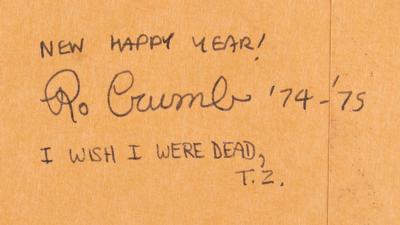 NEW HAPPY YEAR!
Ro Crumb '74-'75
I WISH I WERE DEAD,
T.Z.